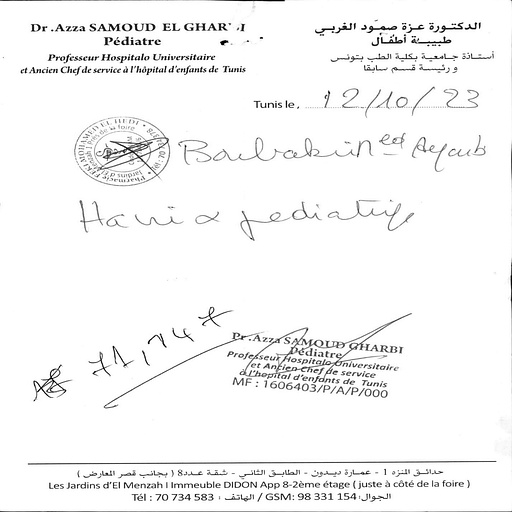 Dr .Azza SAMOUD EL GHARBI
Pédiatre
Professeur Hospitalo Universitaire
et Ancien Chef de service à l'hôpital d'enfants de Tunis
الدكتورة عزة صمّود الغربي
طبيبة أطفال
أستاذة جامعية بكلية الطب بتونس
و رئيسة قسم سابقا
Tunis le , 12/10/23
Ayoub
pediatrique
71,747
Dr .Azza SAMOUD GHARBI
Pédiatre
Professeur Hospitalo Universitaire
et Ancien Chef de service
à l'hopital d'enfants de Tunis
MF : 1606403/P/A/P/000
حدائق المنزه 1 - عمارة ديدون - الطابق الثاني - شقة عدد8 ( بجانب قصر المعارض )
Les Jardins d'El Menzah I Immeuble DIDON App 8-2ème étage ( juste à côté de la foire )
Tél : 70 734 583 / الهاتف : / GSM: 98 331 154 :الجوال